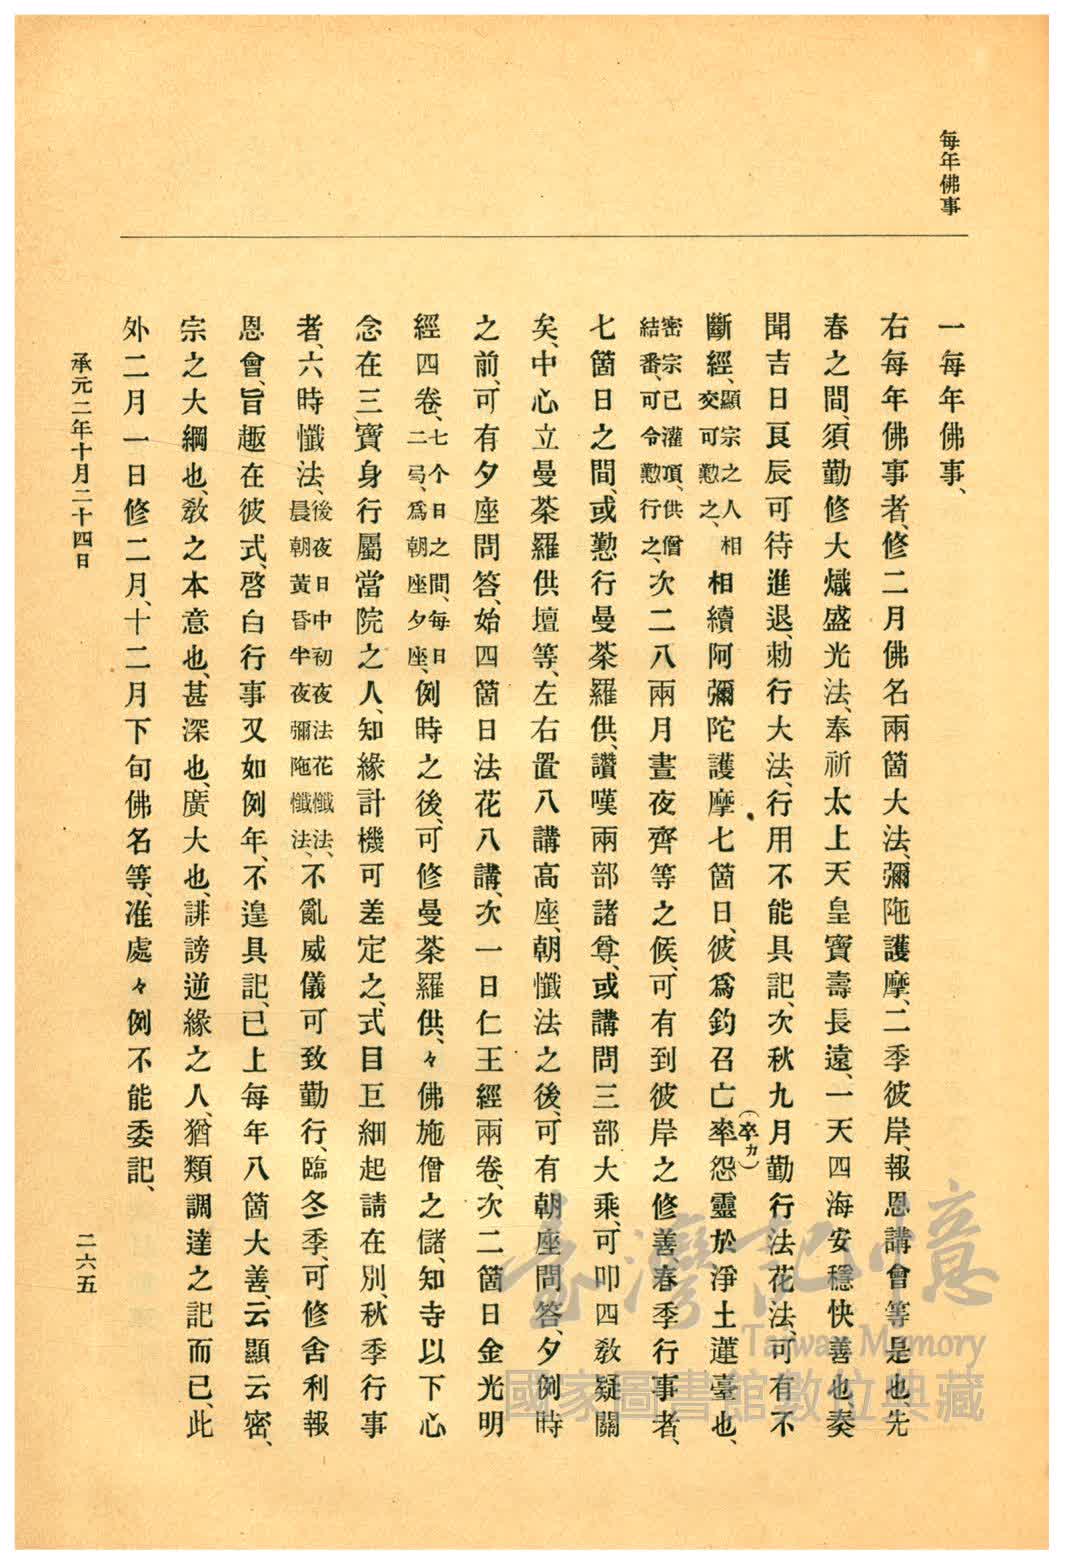 每年佛事
一每年佛事、
右每年佛事者、修二月佛名兩箇大法、彌陁護摩、二季彼岸、報恩講會等是也、先
春之間、須勤修大熾盛光法、奉祈太上天皇寶壽長遠、一天四海安穩快善也、奏
聞吉日良辰可待進退、勅行大法、行用不能具記、次秋九月勤行法花法、可有不
斷經、顯宗之人相交可懃之、相續阿彌陀護摩七箇日、彼爲鈞召亡率(卒カ)怨靈於淨土蓮臺也、
密宗已灌頂、供僧結番、可令懃行之、次二八兩月晝夜齊等之候、可有到彼岸之修善、春季行事者、
七箇日之間、或懃行曼茶羅供、讚嘆兩部諸尊、或講問三部大乘、可叩四敎疑關
矣、中心立曼茶羅供壇等、左右置八講高座、朝懺法之後、可有朝座問答、夕例時
之前、可有夕座問答、始四箇日法花八講、次一日仁王經兩卷、次二箇日金光明
經四卷、七个日之間、每日二弓、爲朝座夕座、例時之後、可修曼茶羅供、々佛施僧之儲、知寺以下心
念在三、寶身行屬當院之人、知緣計機可差定之、式目巨細起請在別、秋季行事
者、六時懺法、後夜日中初夜法花懺法、晨朝黃昏半夜彌陁懺法、不亂威儀可致勤行、臨冬季、可修舍利報
恩會、旨趣在彼式、啓白行事又如例年、不遑具記、已上每年八箇大善、云顯云密、
宗之大綱也、敎之本意也、甚深也、廣大也、誹謗逆緣之人、猶類調達之記而已、此
外二月一日修二月、十二月下旬佛名等、准處々例不能委記、
承元二年十月二十四日
二六五
臺灣記憶
Taiwan Memory
國家圖書館數位典藏